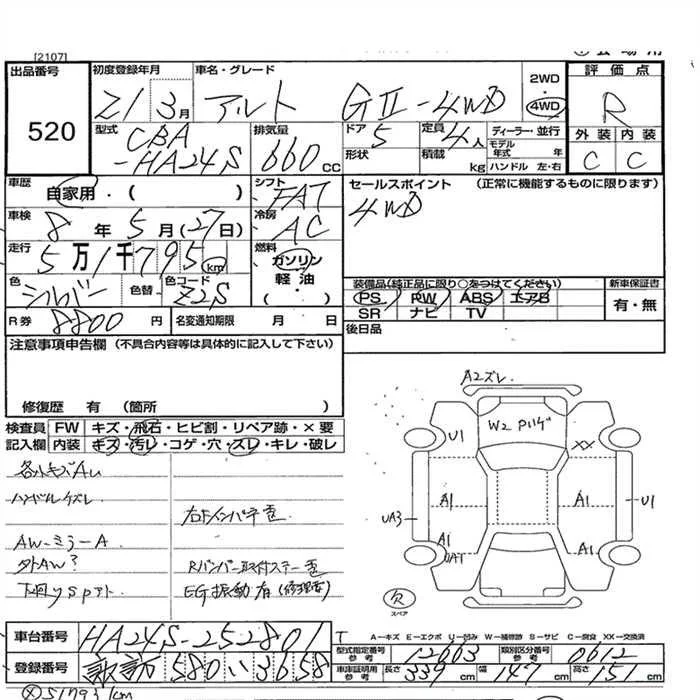 [2107]
出品番号
520
初度登録年月
21 3月
車名・グレード
アルト GⅡ-4WD
2WD
4WD
評価点
R
外装 内装
C C
型式
CBA
-HA24S
排気量
660 CC
ドア 5
形状
定員 4人
積載 kg
ディーラー・並行
モデル年式 年
ハンドル 左・右
車歴
自家用・( )
シフト
FAT
セールスポイント (正常に機能するものに限ります)
4WD
車検
8年 5月(27日)
冷房
AC
走行
5万1千795km
燃料
ガソリン
軽油・
( ・ )
色
シルバー
色替
色コード
Z2S
装備品(純正品に限り○をつけてください)
PS PW ABS エアB
SR ナビ TV
新車保証書
有・無
R券 8800円
名変通知期限 月 日
後日品
注意事項申告欄 (不具合内容等は具体的に記入して下さい)
修復歴 有 (箇所 )
検査員 FW キズ・飛石・ヒビ割・リペア跡・×要
記入欄 内装 キズ・汚レ・コゲ・穴・スレ・キレ・破レ
ハンドルケズレ
AW-ミラーA
外AW?
EG振動有(修理要)
A2ズレ.
U1
XX
A1
A1
U1
UA3
A1
A1
スペア
車台番号
HA24S-252801
登録番号
諏訪 580 い 3658
A-キズ E-エクボ U-凹み W-補修跡 S-サビ C-腐食 XX-交換済
型式指定番号
参考
12663
類別区分番号
参考
0612
車庫証明用
参考
長さ 339cm 幅 147cm 高さ 151cm
51793km